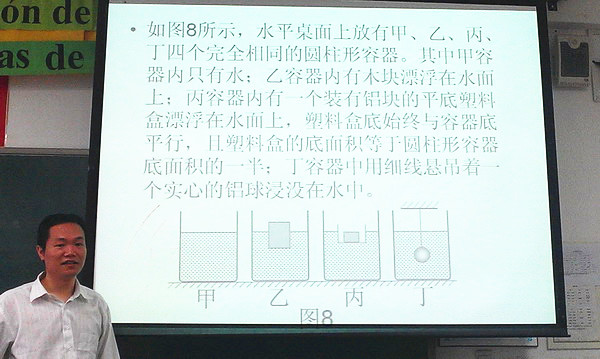 ón de
as de
• 如图8所示，水平桌面上放有甲、乙、丙、
丁四个完全相同的圆柱形容器。其中甲容
器内只有水；乙容器内有木块漂浮在水面
上；丙容器内有一个装有铝块的平底塑料
盒漂浮在水面上，塑料盒底始终与容器底
平行，且塑料盒的底面积等于圆柱形容器
底面积的一半；丁容器中用细线悬吊着一
个实心的铝球浸没在水中。
甲 乙 丙 丁
图8